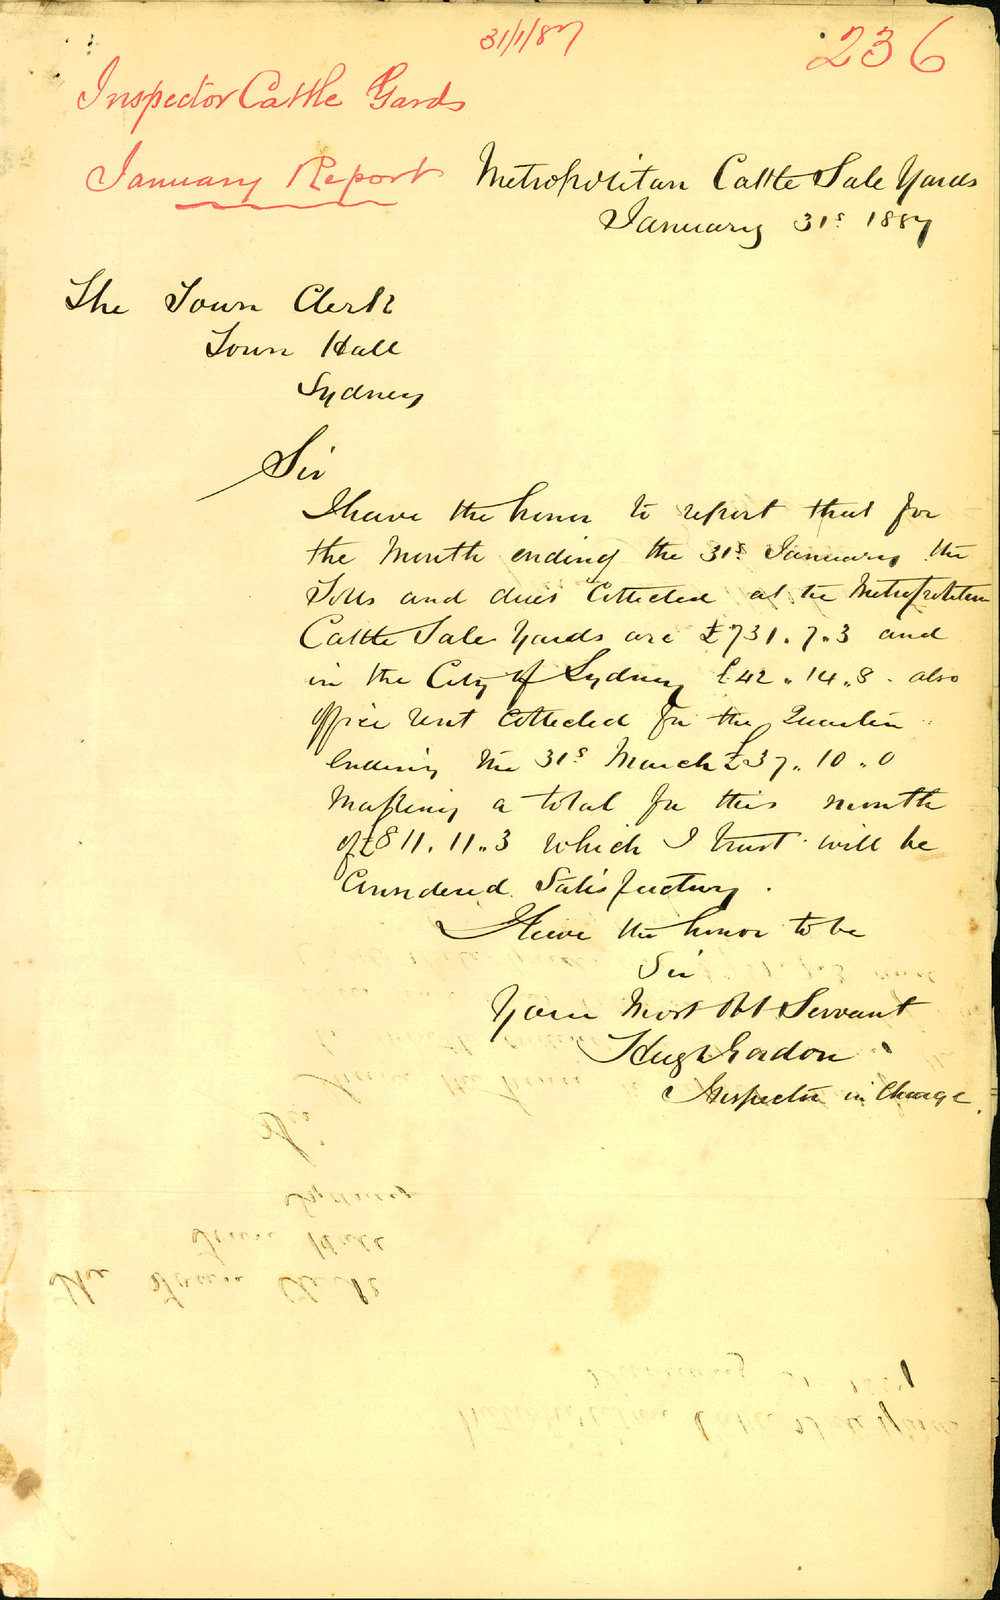 31/1/87
236
Inspector Cattle Yards
January Report
Metropolitan Cattle Sale Yards
January 31s 1887
The Town Clerk
Town Hall
Sydney
Sir
I have the honor to report that for
the Month ending the 31s January the
Tolls and dues Collected at the Metropolitan
Cattle Sale Yards are £731.7.3 and
in the City of Sydney £42.14.8. also
office rent Collected for the Quarter
Ending the 31s March £37.10.0
Making a total for this month
of £811.11.3 which I trust will be
Considered Satisfactory.
I have the honor to be
Sir
Your Most Obt Servant
Hugh Gordon
Inspector in Charge.